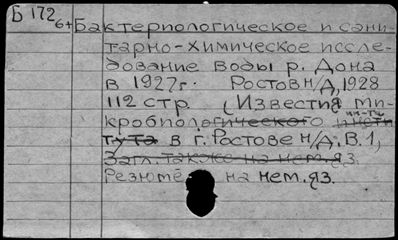 Б 172
6+
Бактериологическое и сани-
тарно-химическое иссле-
дование воды р. Дона
в 1927г. Ростов н/Д, 1928
112 стр. (Известия ми-
кробиологического ин-та
в г. Ростове н/Д. В.1,
Загл. также на нем. яз.
Резюме на нем. яз.